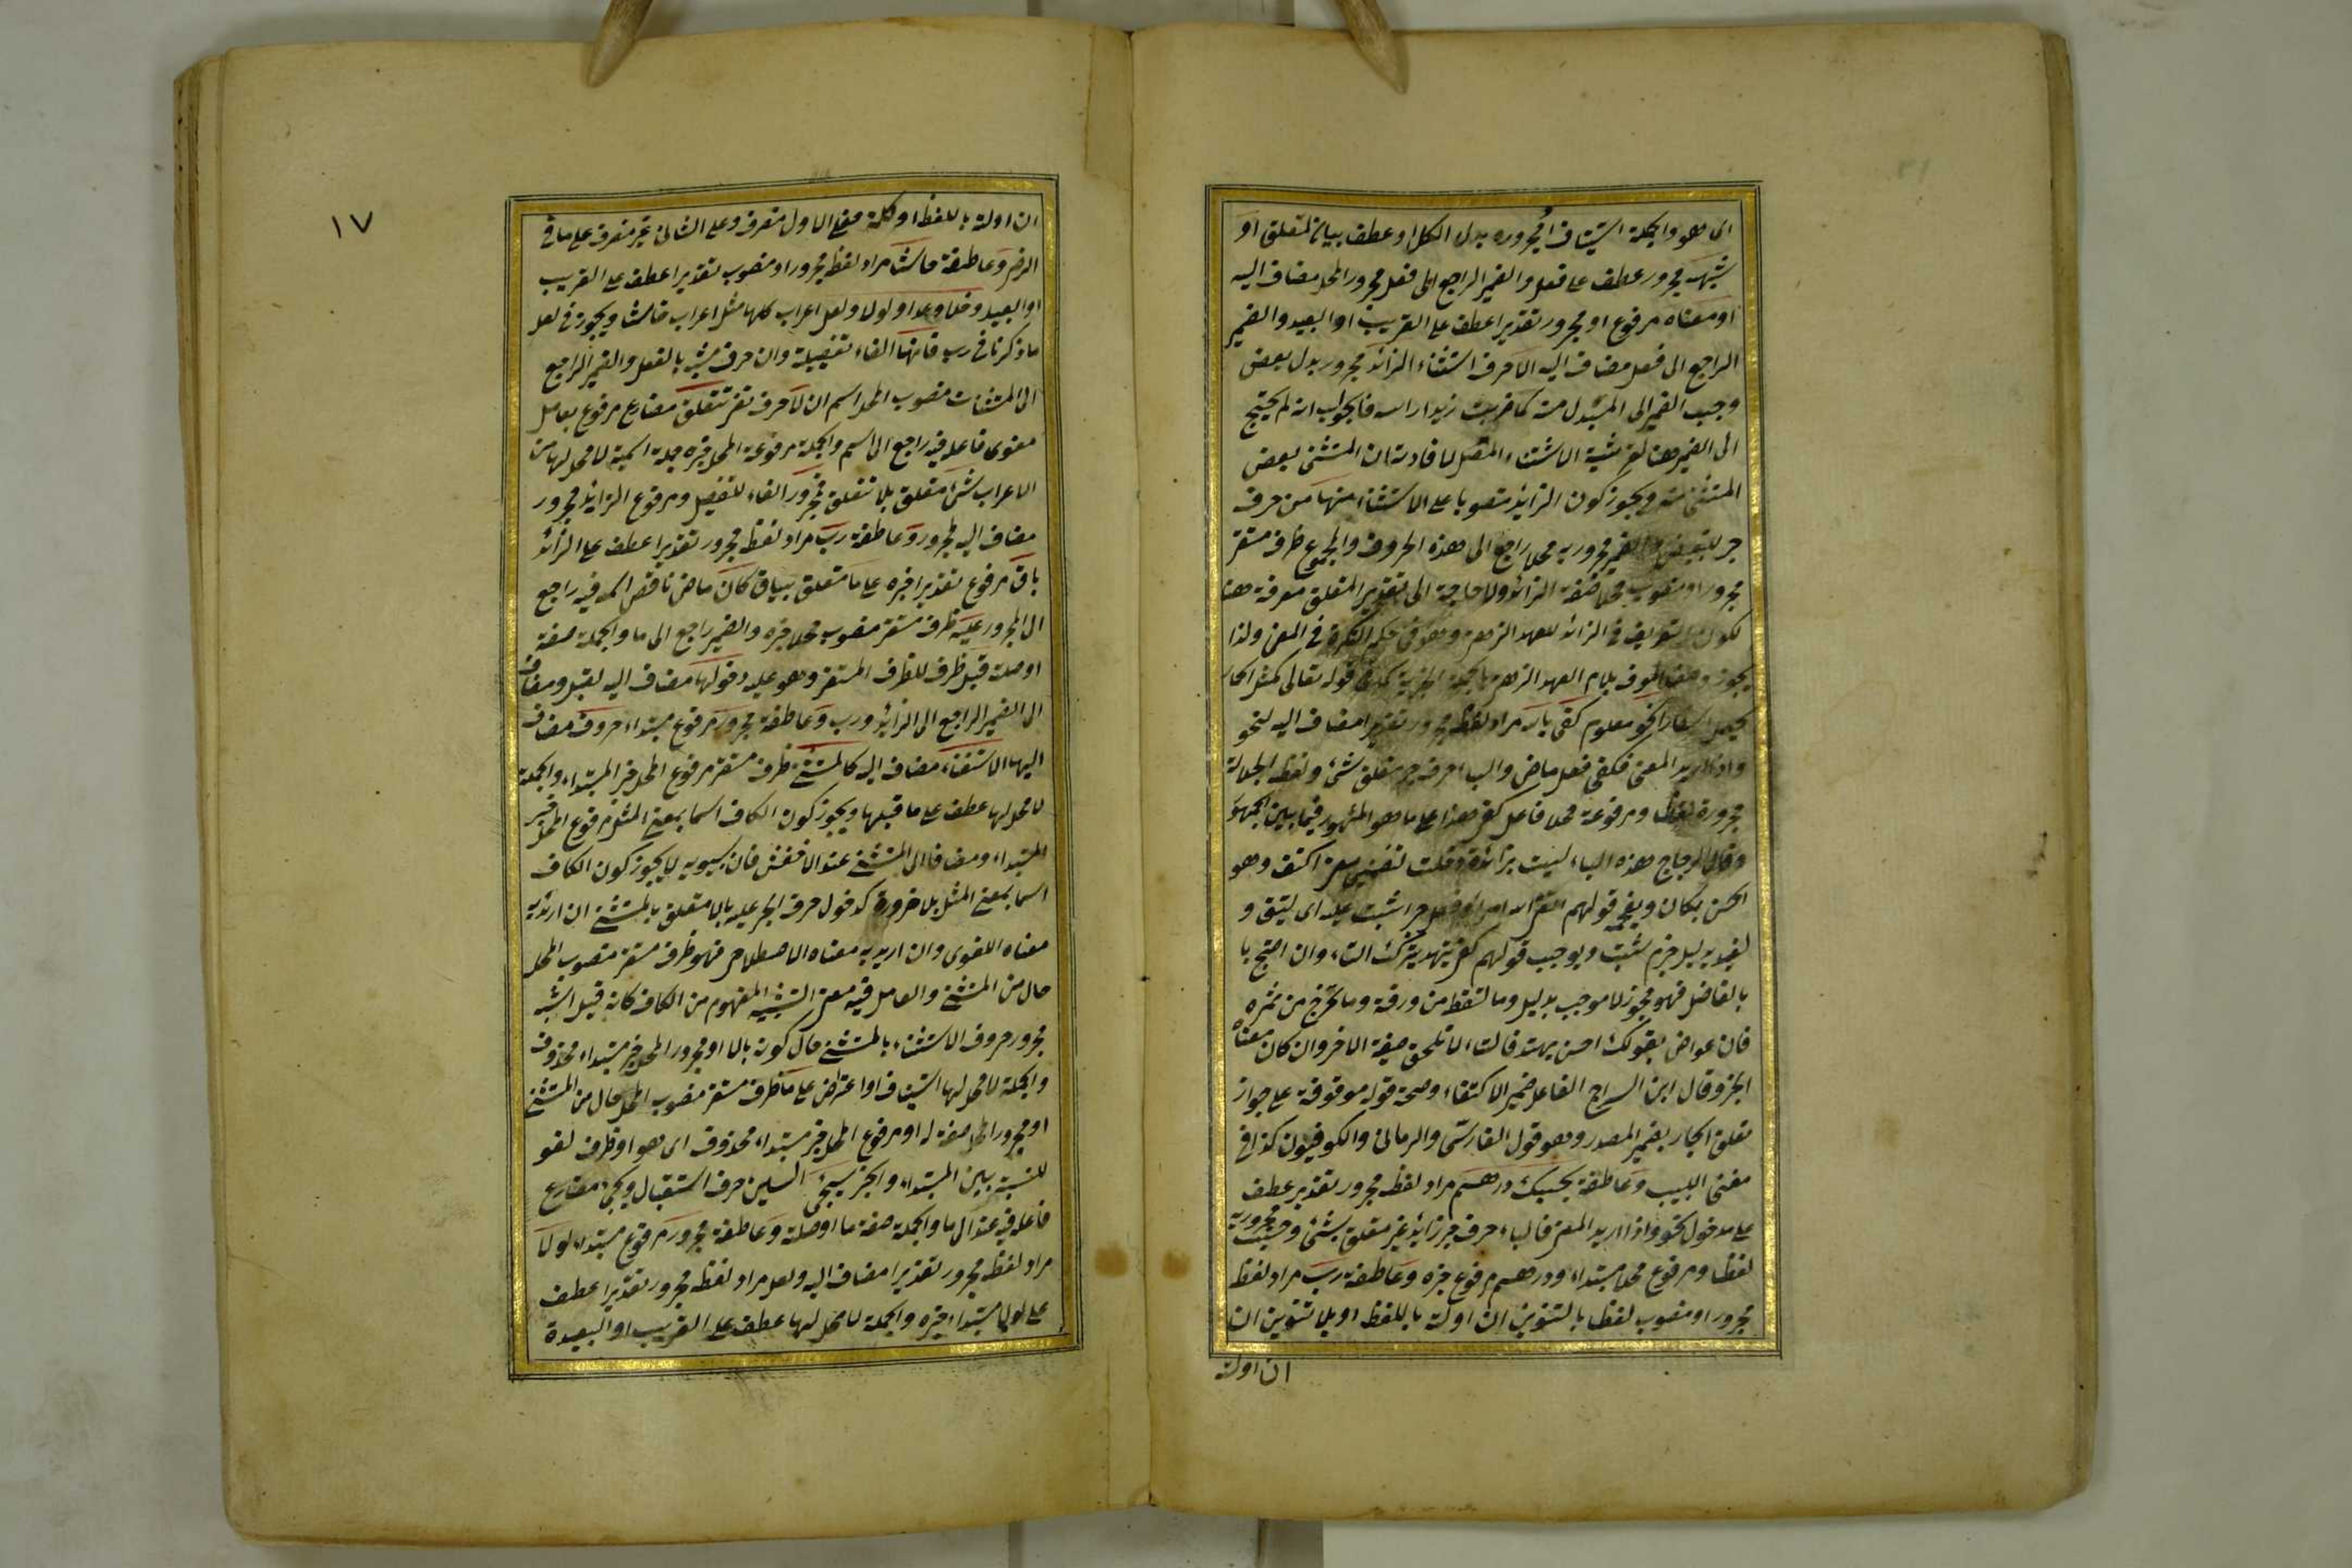 اى هو والجملة استيناف او مجرورة بدل الكل او عطف بيان لمتعلق او
شبهه مجرور عطف على فعل والضمير الراجع الى فعل مجرور المحل مضاف اليه
او معناه مرفوع او مجرور تقديرا عطف على القريب او البعيد والضمير
الراجع الى فعل مضاف اليه الا حرف استثناء الزائد مجرور بدل بعض
وجب الضمير الى المبدل منه كما ضربت زيدا راسه فالجواب انه لم يحتج
الى الضمير هنا لقرينة الاستثناء المتصل لافادته ان المستثنى بعض
المستثنى منه ويجوز كون الزائد منصوبا على الاستثناء منها من حرف
جر للتبعيض والضمير مجرور به محلا راجع الى هذه الحروف والمجموع ظرف مستقر
مجرور او منصوب محلا صفة الزائد ولا حاجة الى تقدير المتعلق معرفة هنا
لكون التعريف فى الزائد للعهد الذهنى وهو فى حكم النكرة فى المعنى ولذا
يجوز وصف المعرف بلام العهد الذهنى بالجملة الخبرية كما فى قوله تعالى كمثل الحمار
يحمل اسفارا نحو معلوم كفى بالله مراد لفظه مجرور تقديرا مضاف اليه لنحو
واذا اريد المعنى فكفى فعل ماض والباء حرف جر متعلق بشئ ولفظة الجلالة
مجرورة لفظا ومرفوعة محلا فاعل كفى هذا على ما هو المشهور فيما بين الجمهور
وقال الزجاج هذه الباء ليست بزائدة دخلت لتضمين معنى اكتف وهو
الحسن بمكان ويصححه قولهم اتقى الله امرؤ فعل خيرا يثب عليه اى ليتق و
ليفعل بدليل جزم يثب ويوجب قولهم كفى بهند بترك التاء وان احتج با
بالفاصل فهو مجوز لا موجب بدليل وما تسقط من ورقة وما تخرج من ثمرة
فان عورض بقولك احسن بهند فالتاء لا تلحق صيغة الامر وان كان معناه
الخبر وقال ابن السراج الفاعل ضمير الاكتفاء وصحة قوله موقوفة على جواز
تعلق الجار بضمير المصدر وهو قول الفارسى والرمانى والكوفيون كذا فى
مغنى اللبيب وعاطفة بحسبك درهم مراد لفظه مجرور تقدير عطف
على مدخول نحو واذا اريد المعنى فالباء حرف جر زائد غير متعلق بشئ وحسب مجرور به
لفظا ومرفوع محلا مبتداء ودرهم مرفوع خبره وعاطفة رب مراد لفظه
مجرور او منصوب لفظا بالتنوين ان اولته باللفظ او بلا تنوين ان
ان اولته
١٧
ان اولته باللفظ او كلمة فعلى الاول منصرف وعلى الثانى غير منصرف على ما فى
الرضى وعاطفة حاشا مراد لفظه مجرور او منصوب تقديرا عطف على القريب
او البعيد وخلا وعدا ولولا ولعل اعراب كلها مثل اعراب حاشا ويجوز فى لعل
ما ذكرنا فى رب فانها الفاء تفصيلية وان حرف مشبه بالفعل والضمير الراجع
الى المستثنيات منصوب المحل اسم ان لا حرف نفى تتعلق مضارع مرفوع بعامل
معنوى فاعله فيه راجع الى اسم والجملة مرفوعة المحل خبره جملة اسمية لا محل لها من
الاعراب بشئ متعلق بلا تتعلق فمجرور الفاء للتفصيل ومرفوع الزائد مجرور
مضاف اليه لمجرور وعاطفة رب مراد لفظه مجرور تقديرا عطف على الزائد
باق مرفوع تقديرا خبره على ما متعلق بباق كان ماض ناقص اسمه فيه راجع
الى المجرور عليه ظرف مستقر منصوب محلا خبره والضمير راجع الى ما والجملة صفة
او صلته قبل ظرف للظرف المستقر وهو عليه دخولها مضاف اليه لقبل ومضاف
الى الضمير الراجع الى الزائد ورب وعاطفة مجرور مرفوع مبتداء حروف مضاف
اليها الاستثناء مضاف اليه كالمستثنى ظرف مستقر مرفوع المحل خبر المبتداء والجملة
لا محل لها عطف على ما قبلها ويجوز كون الكاف اسما بمعنى المثل مرفوع المحل خبر
المبتداء ومضافا الى المستثنى عند الاخفش فان سيبويه لا يجوز كون الكاف
اسما بمعنى المثل بلا ضرورة كدخول حرف الجر عليه بالا متعلق بالمستثنى ان اريد به
معناه اللغوى وان اريد به معناه الاصطلاحى فهو ظرف مستقر منصوب المحل
حال من المستثنى والعامل فيه معنى التشبيه المفهوم من الكاف كانه قيل اشبه
مجرور حروف الاستثناء بالمستثنى حال كونه بالا او مجرور المحل خبر مبتداء محذوف
والجملة لا محل لها استيناف او اعتراض على ما ظرف مستقر منصوب المحل حال من المستثنى
او مجرور المحل صفة له او مرفوع المحل خبر مبتداء محذوف اى هو او ظرف لغو
للنسبة بين المبتداء والخبر سيجئ السين حرف استقبال ويجئ مضارع
فاعله فيه عائد الى ما والجملة صفة ما او صلته وعاطفة مجرور مرفوع مبتداء لولا
مراد لفظه مجرور تقديرا مضاف اليه ولعل مراد لفظه مجرور تقديرا عطف
على لولا مبتداء خبره والجملة لا محل لها عطف على القريب او البعيدة